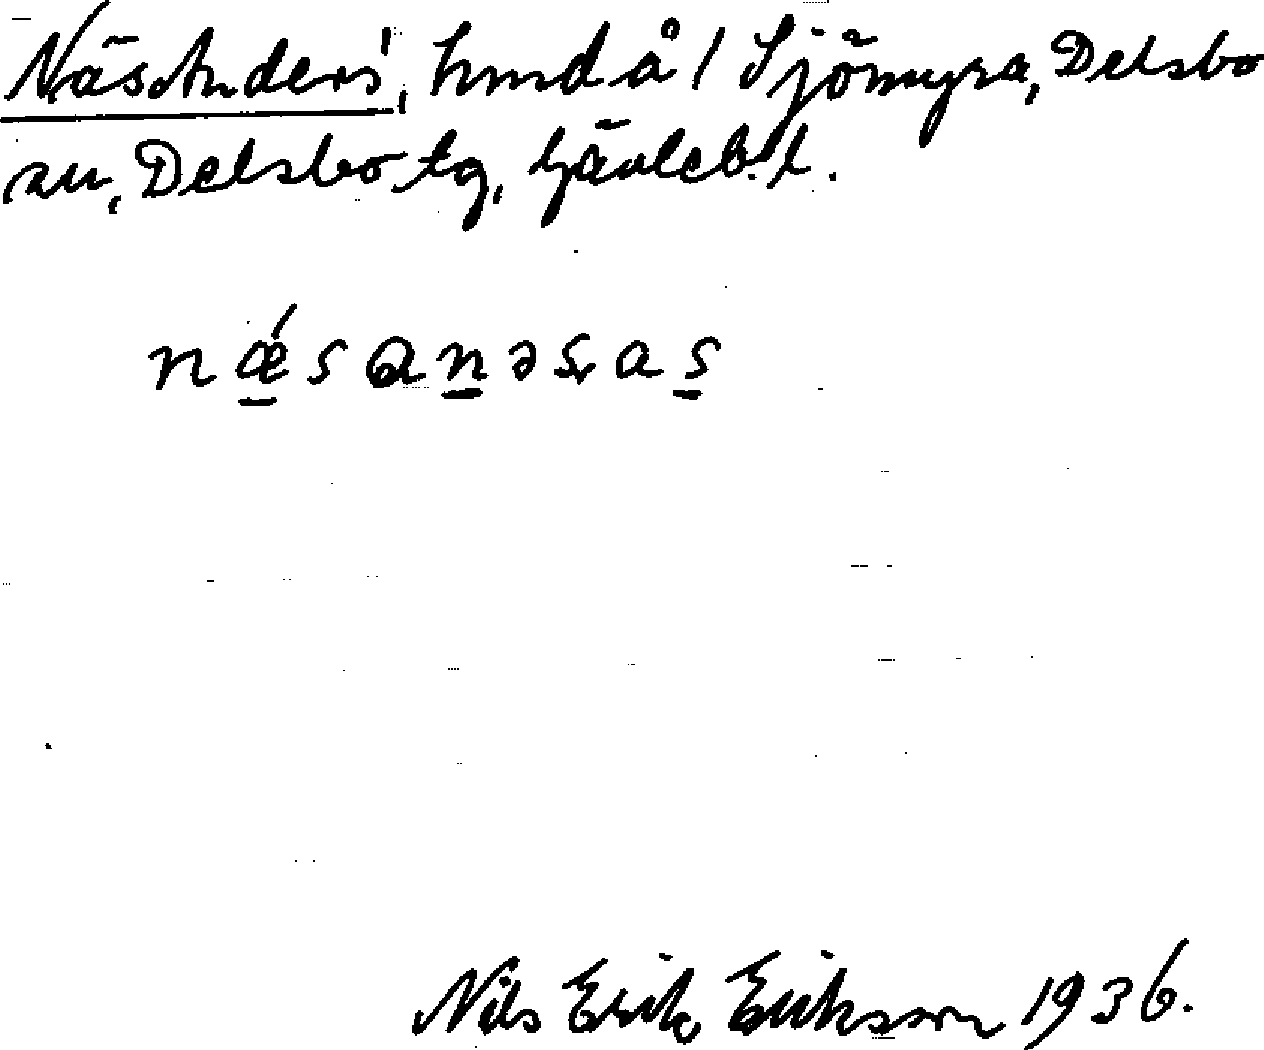 Näsanders', hmd å 1 Sjömyra, Delsbo
sn, Delsbo tg, Gävleb. l.
nǽ̱sαṉəsa̱s
Nils Erik Eriksson 1936.